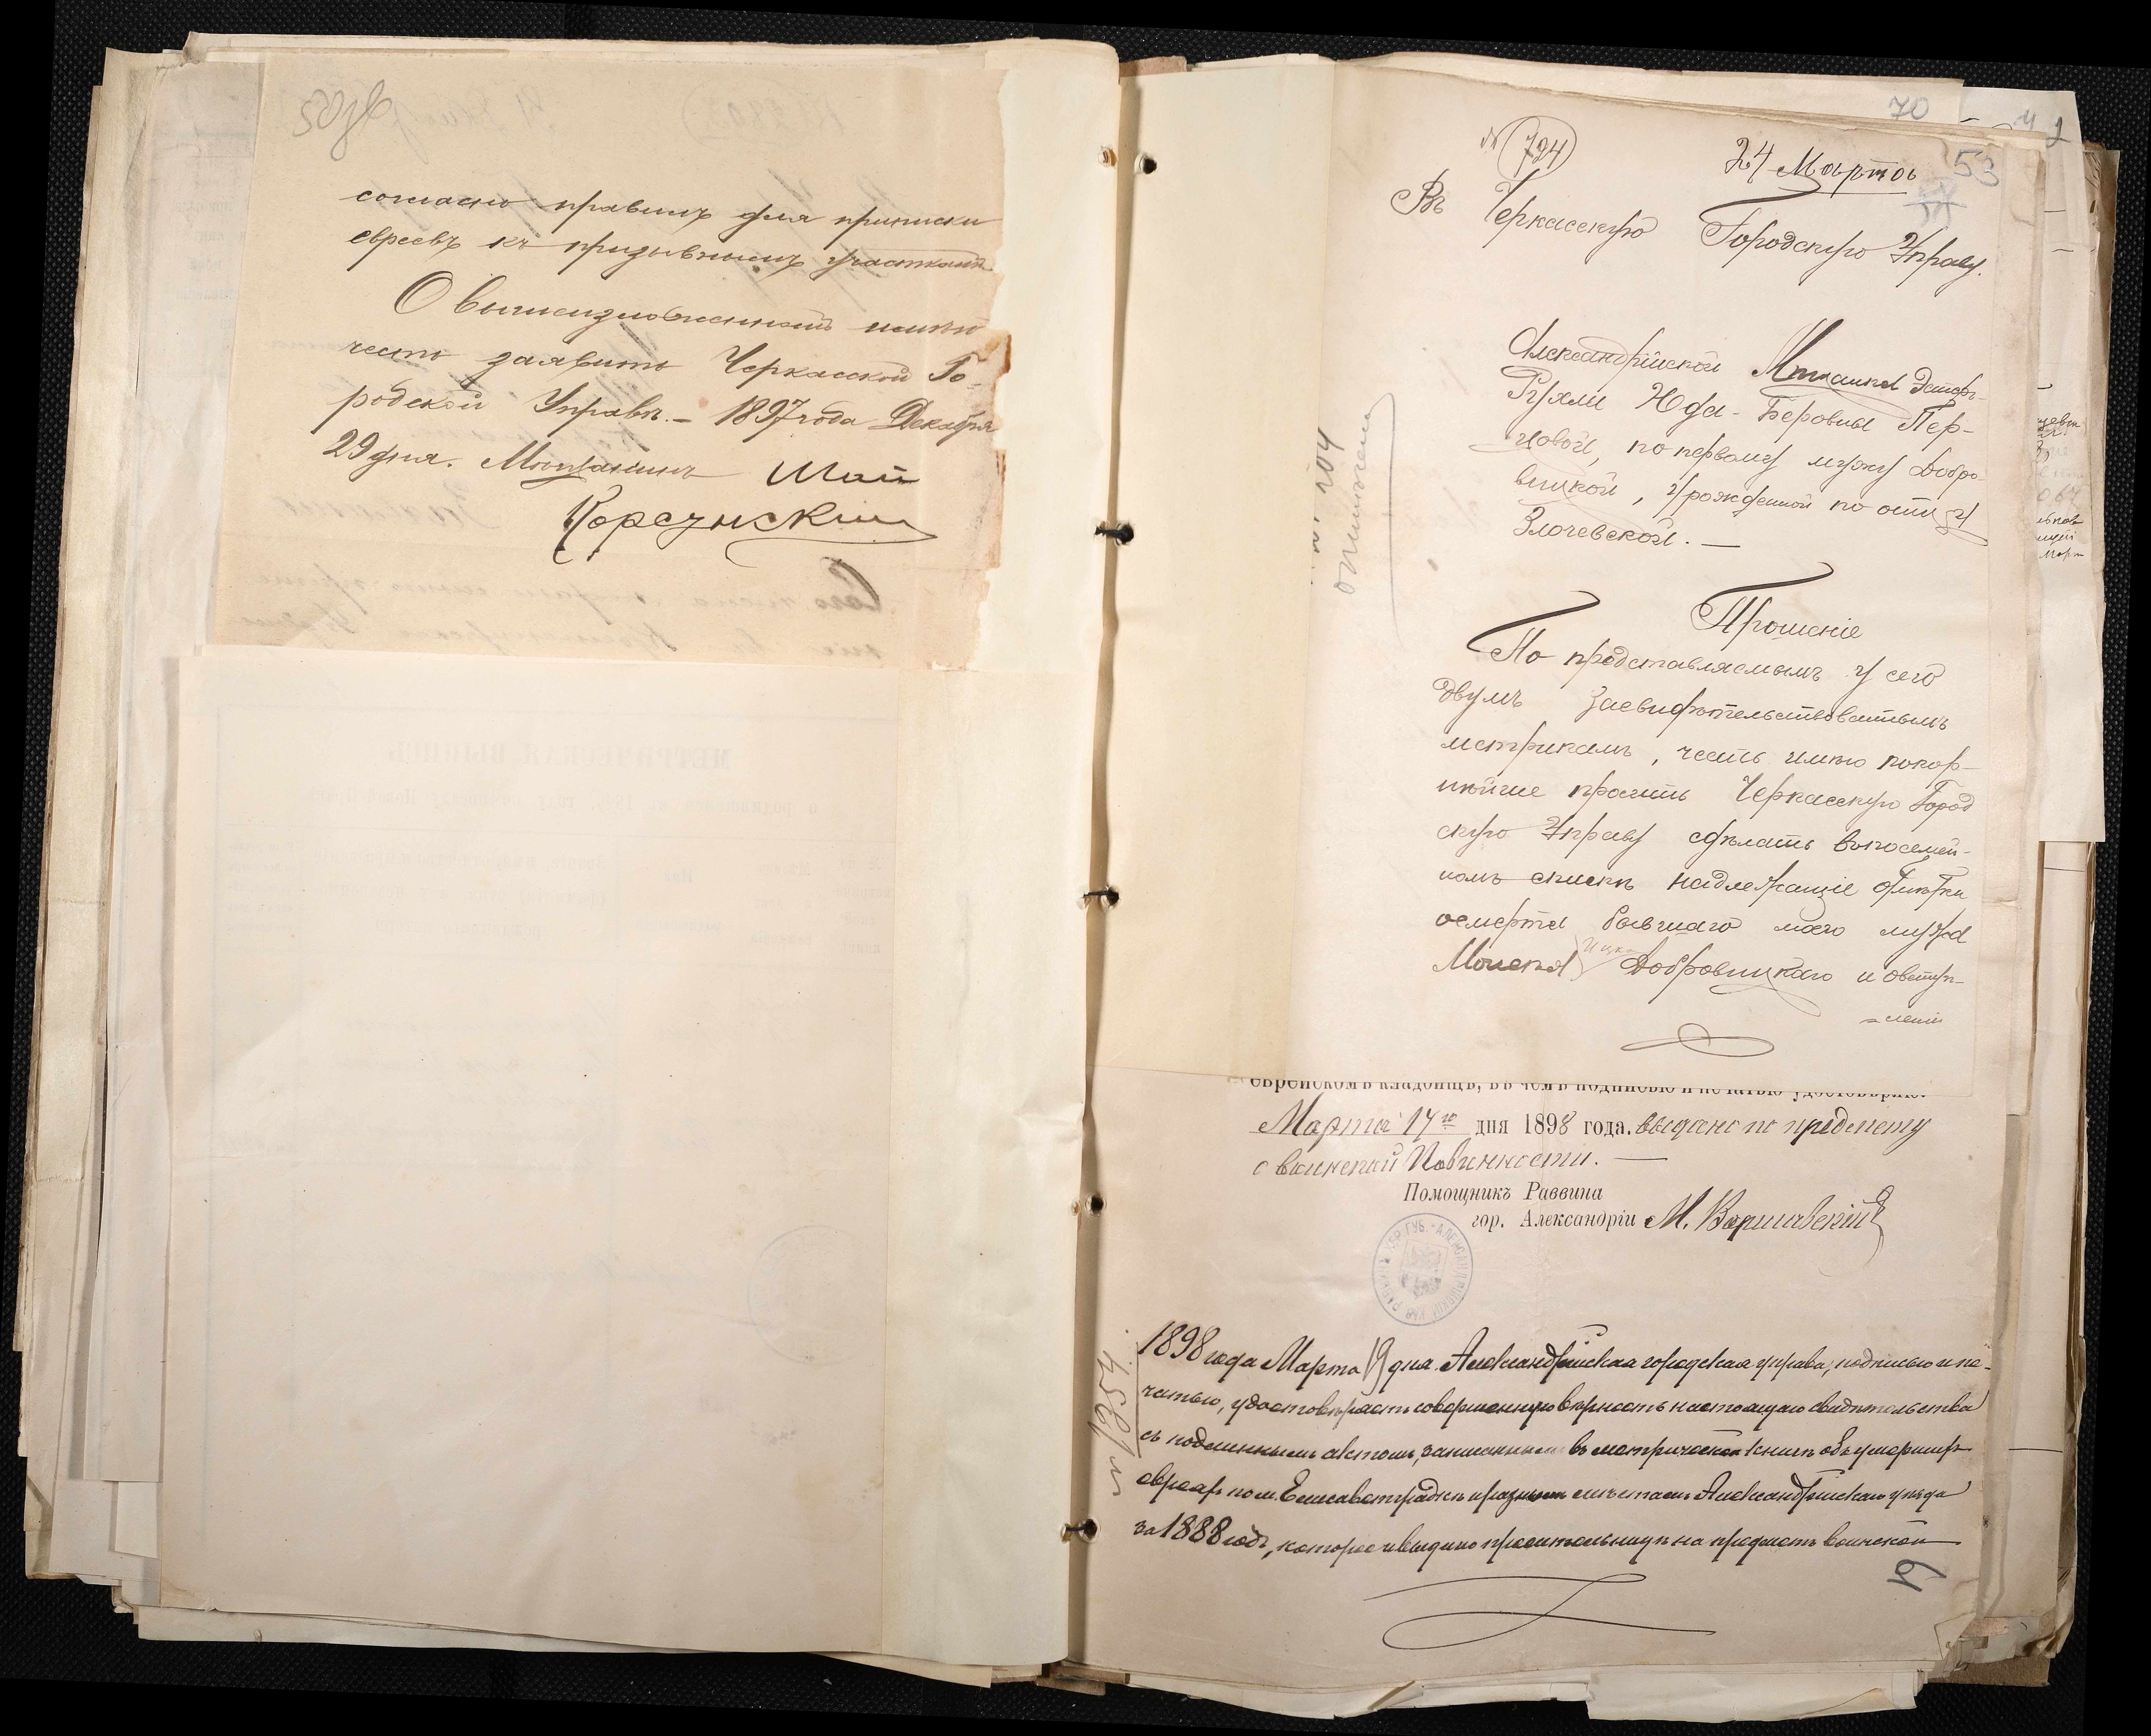 согласно правилъ для приписки
евреевъ къ призывнымъ участкамъ
О вышеизложенномъ имѣю
честь заявить Черкасской Го-
родской Управѣ. - 1897 года Декабря
29 дня. Мѣщанинъ Мой
Корсунский
70
№ 724
24 Марта
53
Въ Черкасскую Городскую Управу.
Александрійской Мѣщанки
Рухли Юда-Беровны Пер-
цовой, по первому мужу Добро-
вицкой, урожденной по отцу
Злочевской. —
Прошеніе
По представляемымъ у сего
двумъ засвидѣтельствованнымъ
метрикамъ, честь имѣю покор-
нѣйше просить Черкасскую Город
скую Управу сдѣлать въ посемей-
номъ спискѣ надлежащіе отмѣтки
о смерти бывшаго моего мужа
Моисея Ицка Добровицкаго и о вступ-
=леніи
еврейскомъ кладбищѣ, въ чемъ подписью и печатью удостовѣряю.
Марта 17го дня 1898 года. выдано по предмету
о воинской Повинности. —
Помощникъ Раввина
гор. Александріи М. Варшавскій
1898 года Марта 19 дня. Александрійская городская управа, подписью и пе-
чатью, удостовѣряетъ совершенную вѣрность настоящаго свидѣтельства
съ подлиннымъ актомъ, записаннымъ въ метрической книгѣ объ умершихъ
евреяхъ по м. Елисаветградкѣ и разнымъ мѣстамъ Александрійскаго уѣзда
за 1888 годъ, которое и выдано просительницѣ на предметъ воинской
№ 1254